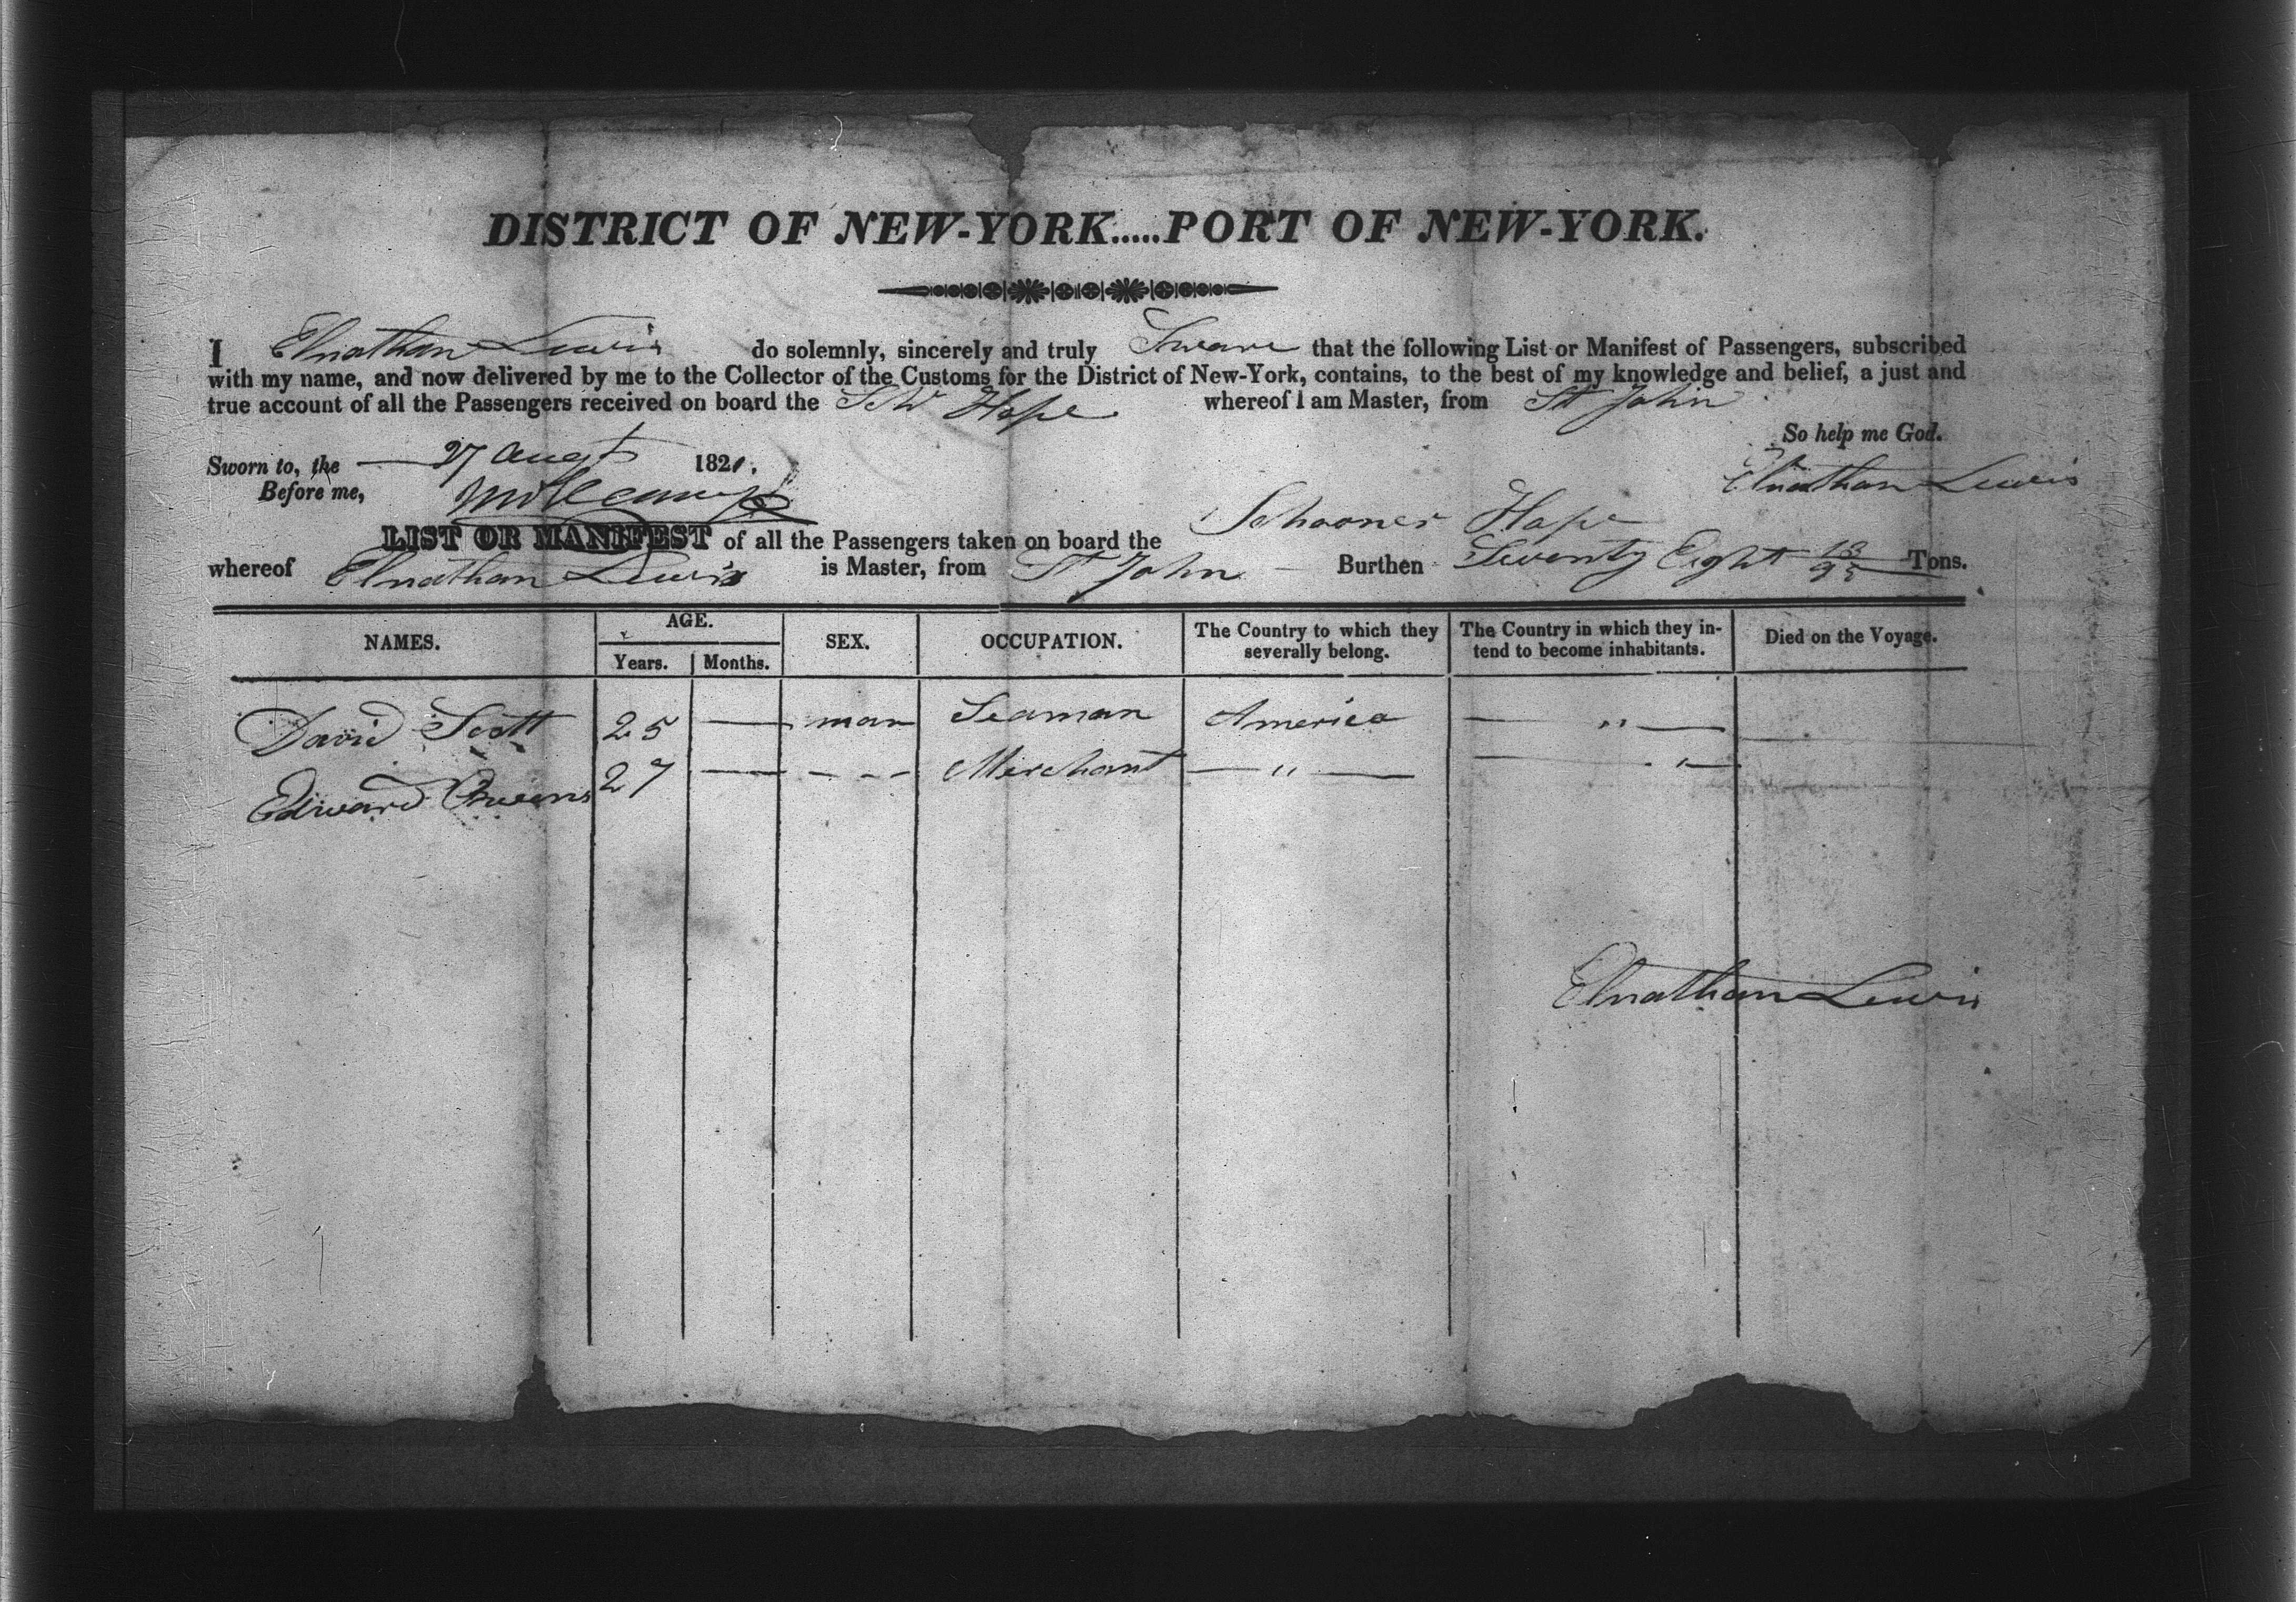 DISTRICT OF NEW-YORK.....PORT OF NEW-YORK.
I Elnathan Lewis do solemnly, sincerely and truly Sweare that the following List or Manifest of Passengers, subscribed
with my name, and now delivered by me to the Collector of the Customs for the District of New-York, contains, to the best of my knowledge and belief, a just and
true account of all the Passengers received on board the Schr Hope whereof I am Master, from St John
So help me God.
Sworn to, the 27 Augt 1821. Elnathan Lewis
Before me,
LIST OR MANIFEST of all the Passengers taken on board the Schooner Hope
whereof Elnathan Lewis is Master, from St John Burthen Seventy Eight 13/95 Tons.
NAMES. AGE. Years. Months. SEX. OCCUPATION. The Country to which they severally belong. The Country in which they intend to become inhabitants. Died on the Voyage.
David Scott 25 — man Seaman America — " —
Edward Owens 27 — - - - Merchant — " — — " —
Elnathan Lewis